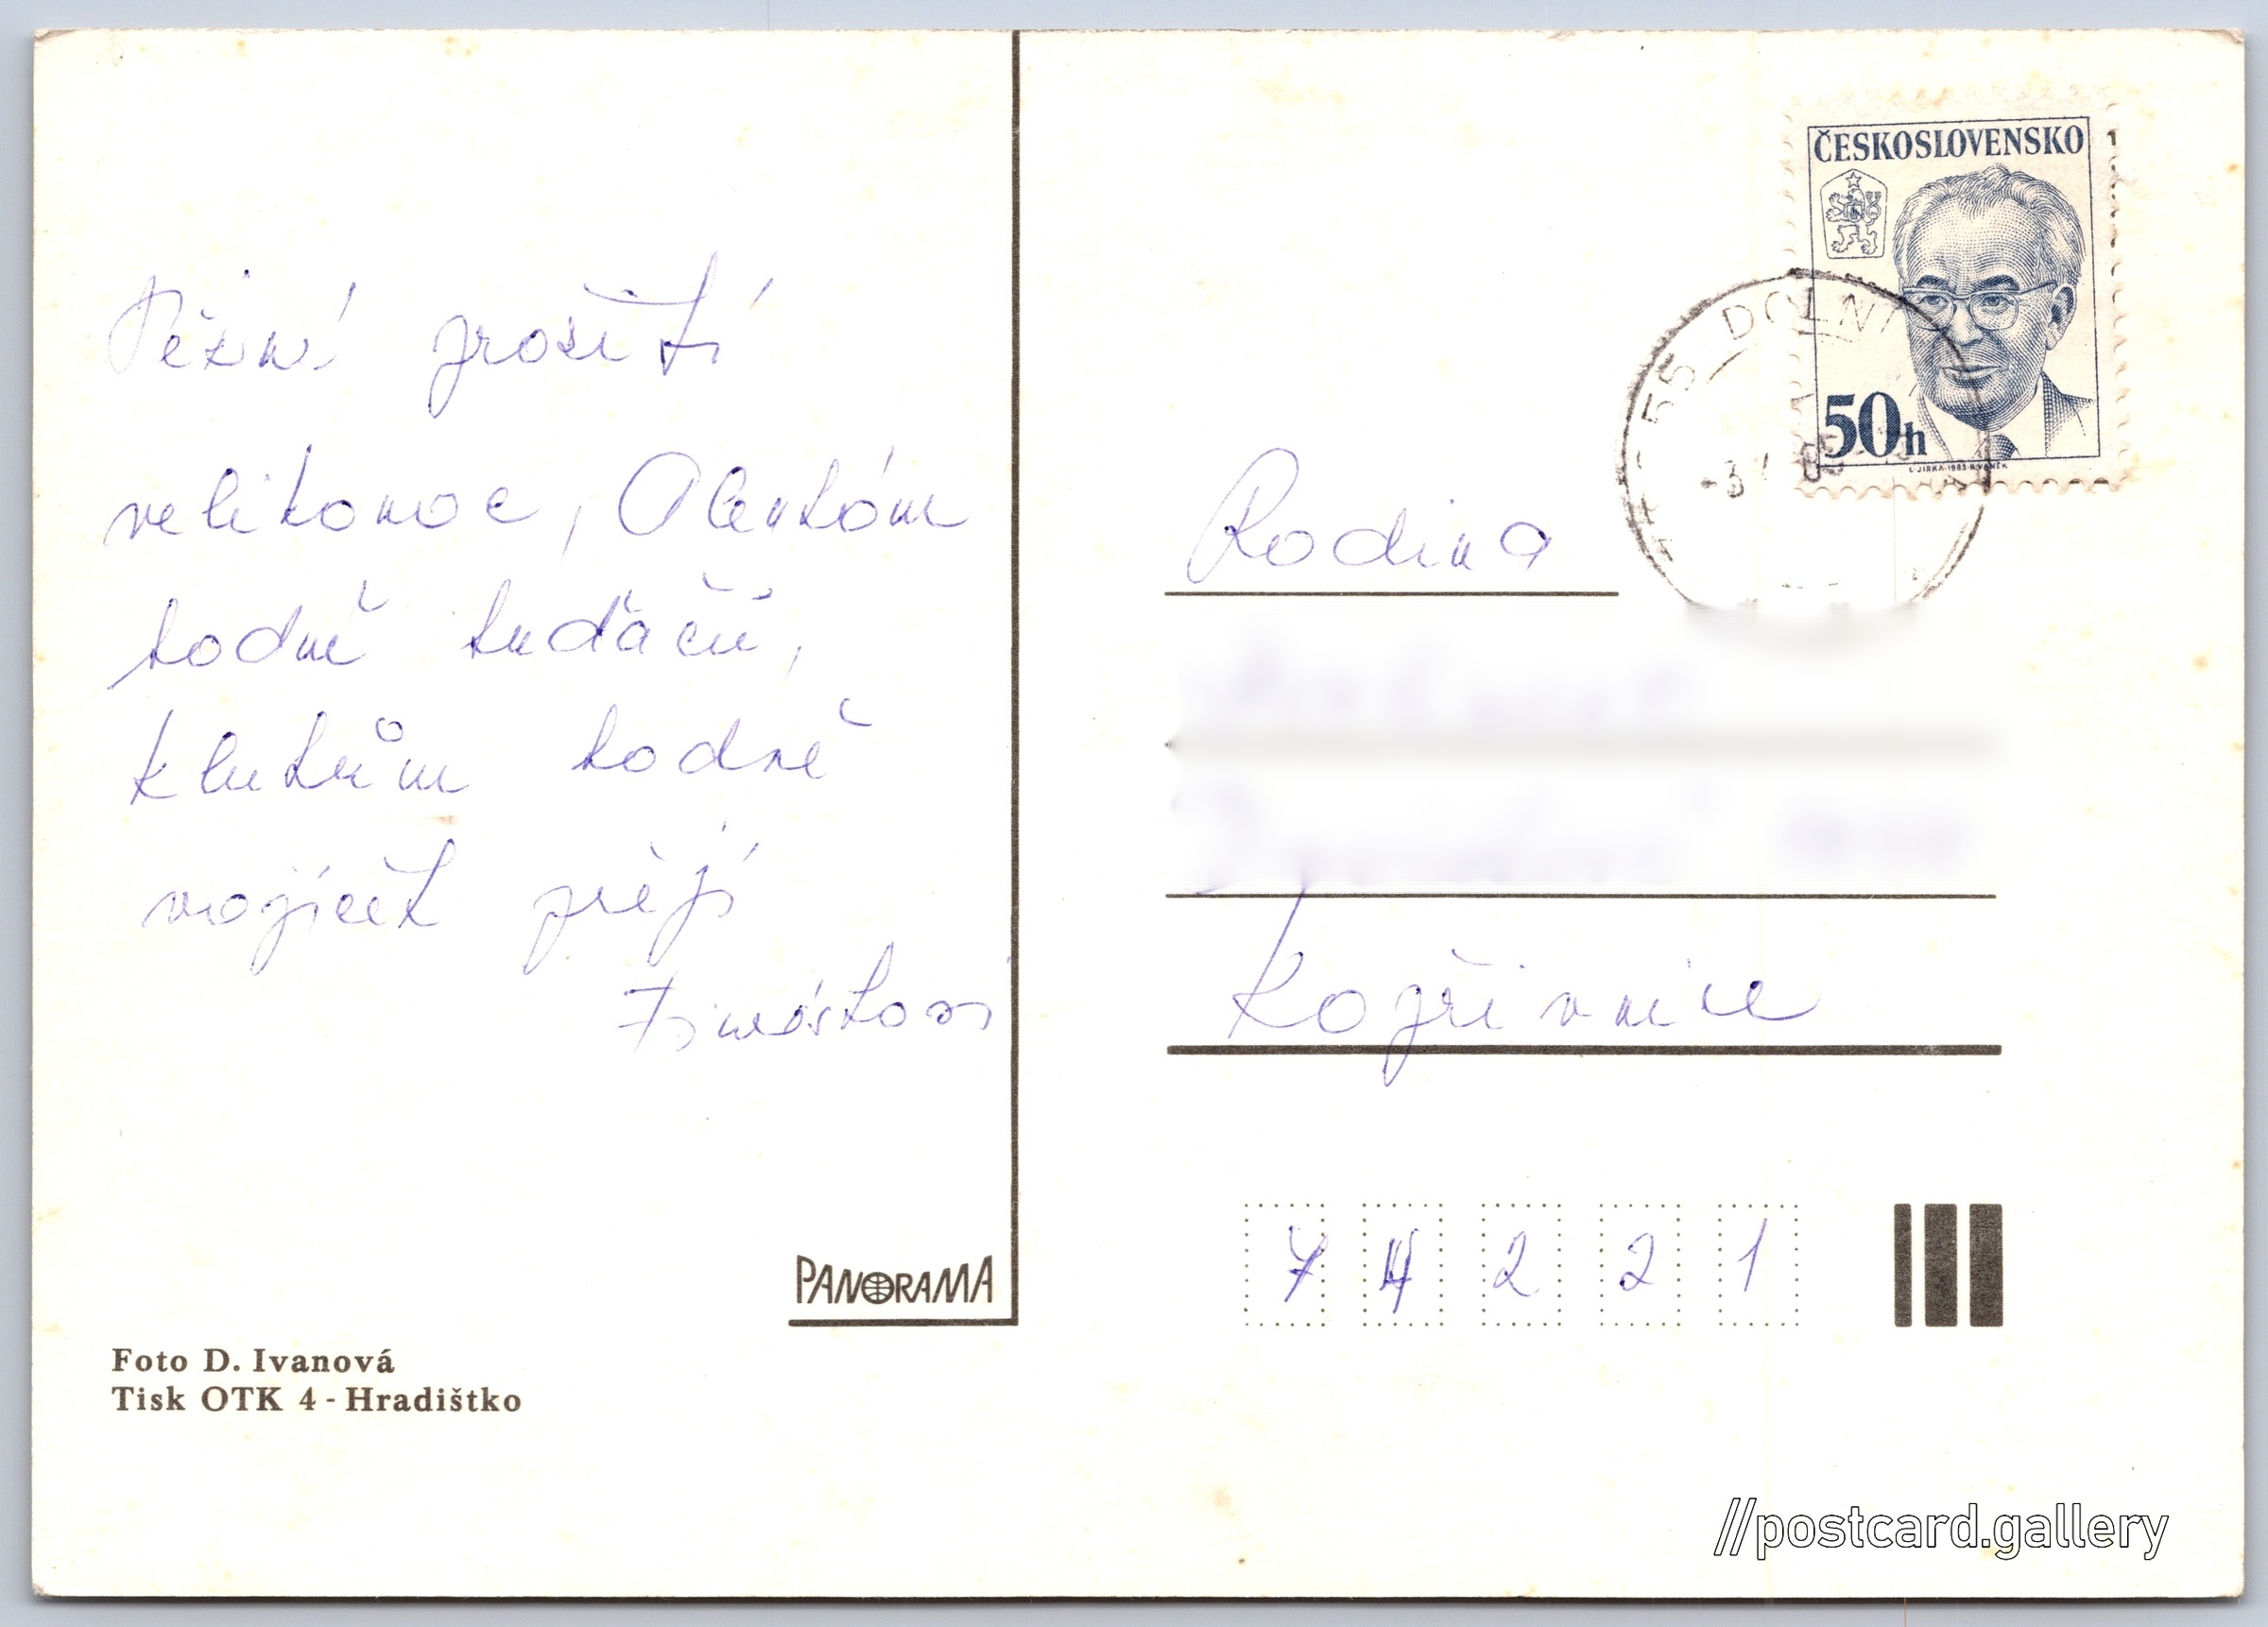 Pěkné prožití
velikonoc, Alenkám
hodně kuďáčů,
klukům hodně
vajíček přejí
ČESKOSLOVENSKO
50h
L. JIRKA - 1983 - R. VANĚK
55 DOLNÍ
-3
Rodina
Kopřivnice
74221
PANORAMA
Foto D. Ivanová
Tisk OTK 4 - Hradištko
//postcard.gallery